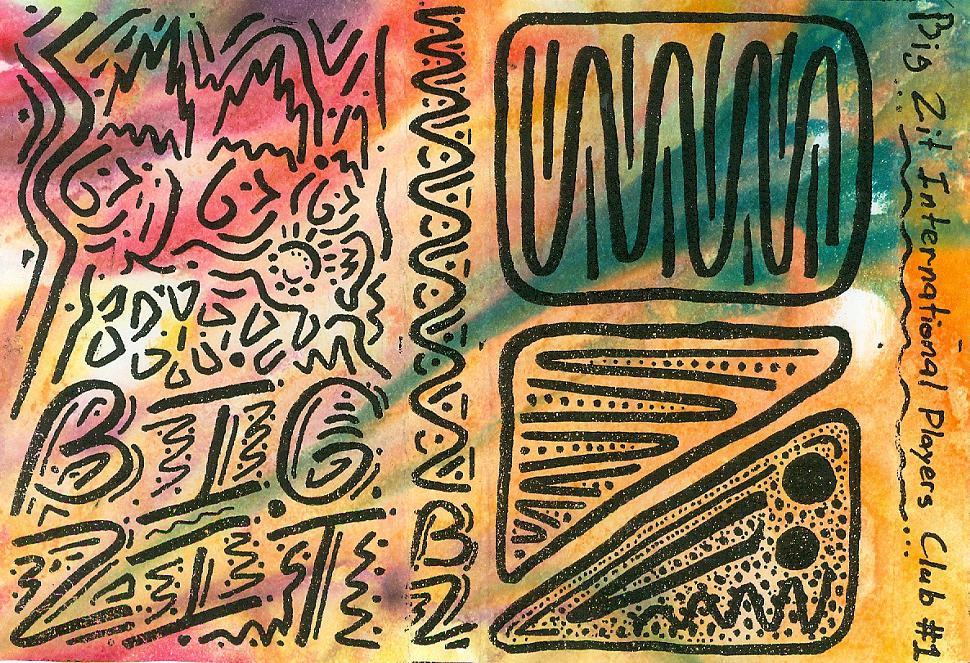 BIG
ZIT
BZ
Big Zit International Players Club #1